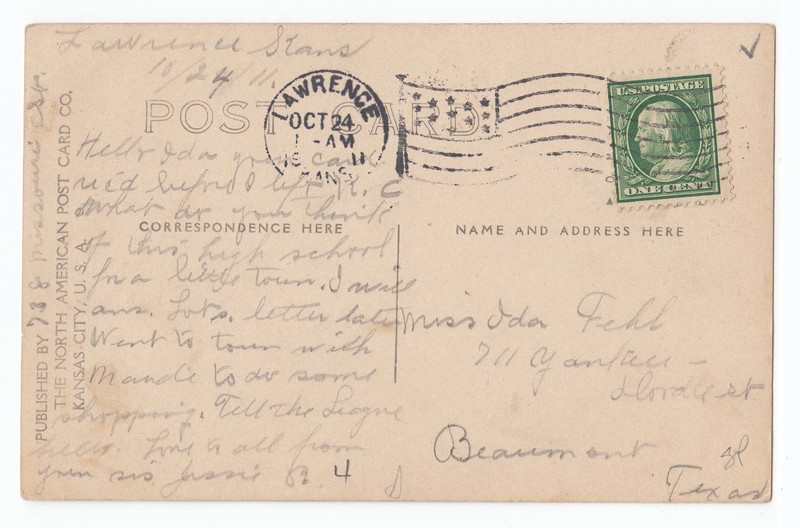 Lawrence Kans
10/24/11.
POST CARD
LAWRENCE
OCT 24
1 - AM
19 11
KANS.
U.S. POSTAGE
ONE CENT
Hello Ida your card
rec'd before I left K. C
What do you think
CORRESPONDENCE HERE
of this high school
for a little town. I will
ans. Lot's. letter later
Went to town with
Maude to do some
shopping. Tell the League
hello. Love to all from
your sis Jessie
4
738 Missouri
PUBLISHED BY
THE NORTH AMERICAN POST CARD CO.
KANSAS CITY, U. S. A.
NAME AND ADDRESS HERE
Miss Ida Fehl
711 Yankee -
st
Beaumont
Texas